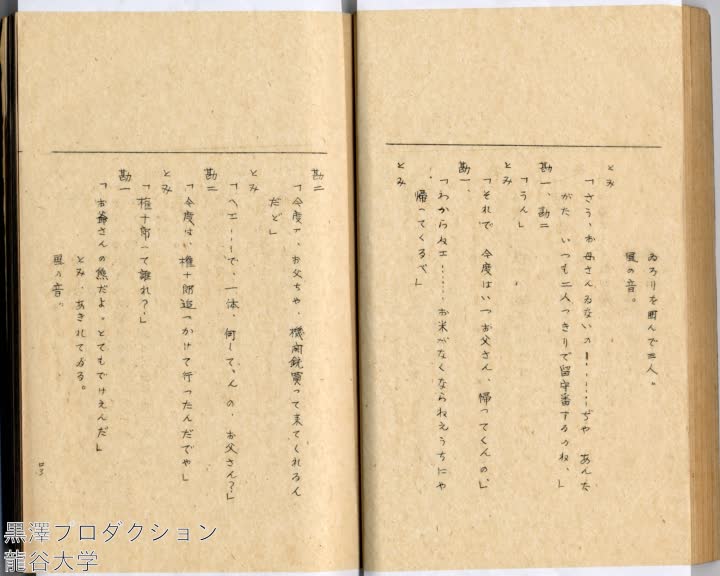 ゐろりを囲んで三人。
風の音。
とみ
「さう、お母さんゐないの‥‥‥‥ぢや あんた
がた いつも二人つきりで留守番するのね、」
勘一、勘二
「うん」
とみ
「それで 今度はいつお父さん、帰ってくんの」
勘一、
「わからねエ‥‥‥お米がなくならねえうちにや
帰ってくるべ」
とみ
勘二
「今度ァ、お父ちや、機関銃買って来てくれるん
だど」
とみ
「ヘエ‥‥で、一体、何してゝんの、お父さん?」
勘二
「今度は、権十郎追つかけて行ったんだでや」
とみ
「権十郎って誰れ?」
勘一
「お爺さんの熊だよ。とてもでけえんだ」
とみ、あきれてゐる。
風の音。
黒澤プロダクション
龍谷大学